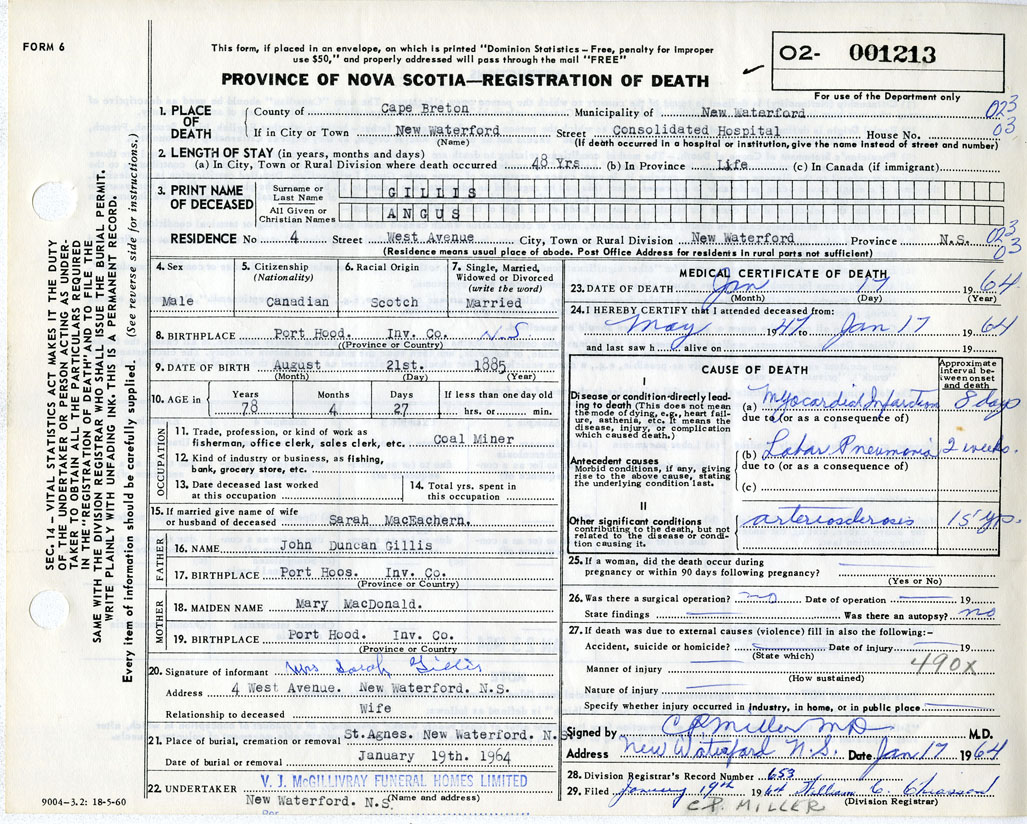 FORM 6
This form, if placed in an envelope, on which is printed "Dominion Statistics – Free, penalty for improper
use $50," and properly addressed will pass through the mail "FREE"
PROVINCE OF NOVA SCOTIA—REGISTRATION OF DEATH
O2- 001213
For use of the Department only
SEC. 14 – VITAL STATISTICS ACT MAKES IT THE DUTY
OF THE UNDERTAKER OR PERSON ACTING AS UNDER-
TAKER TO OBTAIN ALL THE PARTICULARS REQUIRED
IN THE "REGISTRATION OF DEATH" AND TO FILE THE
SAME WITH THE DIVISION REGISTRAR WHO SHALL ISSUE THE BURIAL PERMIT.
WRITE PLAINLY WITH UNFADING INK. THIS IS A PERMANENT RECORD.
Every item of information should be carefully supplied. (See reverse side for instructions.)
1. PLACE OF DEATH
County of Cape Breton Municipality of New Waterford 023
If in City or Town New Waterford Street Consolidated Hospital House No. 03
(Name) (If death occurred in a hospital or institution, give the name instead of street and number)
2. LENGTH OF STAY (in years, months and days)
(a) In City, Town or Rural Division where death occurred 48 Yrs (b) In Province Life (c) In Canada (if immigrant)
3. PRINT NAME OF DECEASED
Surname or Last Name GILLIS
All Given or Christian Names ANGUS
RESIDENCE No 4 Street West Avenue City, Town or Rural Division New Waterford Province N.S. 023
03
(Residence means usual place of abode. Post Office Address for residents in rural parts not sufficient)
4. Sex
Male
5. Citizenship
(Nationality)
Canadian
6. Racial Origin
Scotch
7. Single, Married,
Widowed or Divorced
(write the word)
Married
8. BIRTHPLACE Port Hood. Inv. Co. N.S
((Province or Country)
9. DATE OF BIRTH August 21st. 1885
(Month) (Day) (Year)
10. AGE in Years 78 Months 4 Days 27 If less than one day old hrs. or min.
OCCUPATION
11. Trade, profession, or kind of work as
fisherman, office clerk, sales clerk, etc. Coal Miner
12. Kind of industry or business, as fishing,
bank, grocery store, etc.
13. Date deceased last worked
at this occupation
14. Total yrs. spent in
this occupation
15. If married give name of wife
or husband of deceased Sarah MacEachern.
FATHER
16. NAME John Duncan Gillis
17. BIRTHPLACE Port Hoos. Inv. Co.
(Province or Country)
MOTHER
18. MAIDEN NAME Mary MacDonald.
19. BIRTHPLACE Port Hood. Inv. Co.
(Province or Country
20. Signature of informant Mrs Sarah Gillis
Address 4 West Avenue. New Waterford. N.S.
Relationship to deceased Wife
21. Place of burial, cremation or removal St.Agnes. New Waterford. N.S
Date of burial or removal January 19th. 1964
22. UNDERTAKER V. J. McGILLIVRAY FUNERAL HOMES LIMITED
New Waterford. N.S. (Name and address)
Per
9004-3.2: 18-5-60
MEDICAL CERTIFICATE OF DEATH
23. DATE OF DEATH Jan 17 1964
(Month) (Day) (Year)
24. I HEREBY CERTIFY that I attended deceased from:
May 1947 to Jan 17 1964
and last saw h alive on 19
CAUSE OF DEATH
Approximate interval between onset and death
I
Disease or condition directly leading to death (This does not mean the mode of dying, e.g., heart failure, asthenia, etc. It means the disease, injury, or complication which caused death.)
(a) Myocardial Infarction 8 days
due to (or as a consequence of)
Antecedent causes
Morbid conditions, if any, giving rise to the above cause, stating the underlying condition last.
(b) Lobar Pneumonia 2 weeks.
due to (or as a consequence of)
(c)
II
Other significant conditions
contributing to the death, but not related to the disease or condition causing it.
arteriosclerosis 15 yrs.
25. If a woman, did the death occur during
pregnancy or within 90 days following pregnancy?
(Yes or No)
26. Was there a surgical operation? no Date of operation 19
State findings Was there an autopsy? no
27. If death was due to external causes (violence) fill in also the following:–
Accident, suicide or homicide? Date of injury 19
(State which)
490X
Manner of injury
(How sustained)
Nature of injury
Specify whether injury occurred in industry, in home, or in public place
Signed by C P Miller MD M.D.
Address New Waterford N.S. Date Jan 17 1964
28. Division Registrar's Record Number 653
29. Filed January 19th 1964 William C. Chiasson
(Division Registrar)
C.P. MILLER